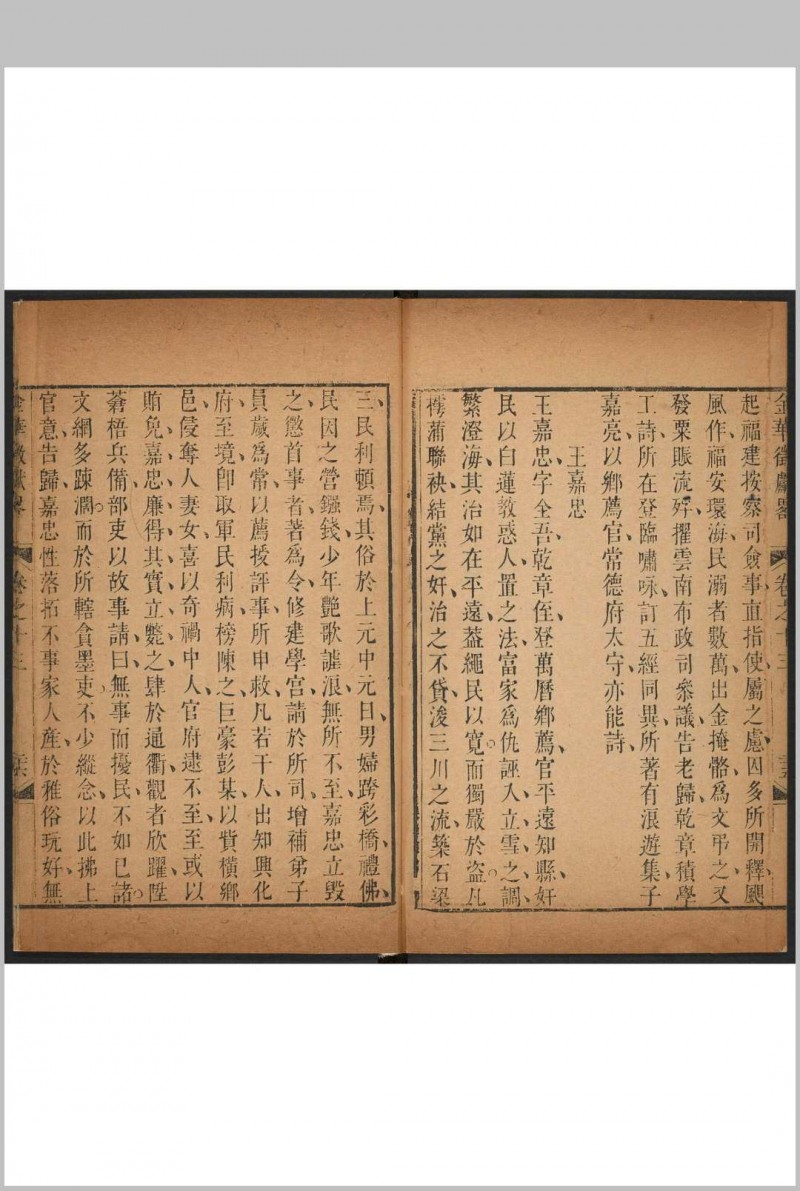 金華徵獻畧　卷之十三
起福建按察司僉事直指使屬之慮因多所開釋颶
風作福安環海民溺者數萬出金掩骼爲文弔之又
發粟賑流殍擢雲南布政司參議告老歸乾章積學
工詩所在登臨嘯咏訂五經同異所著有浪遊集子
嘉亮以鄉薦官常德府太守亦能詩
王嘉忠
王嘉忠字全吾乾章侄登萬曆鄉薦官平遠知縣奸
民以白蓮敎惑人置之法富家爲仇誣入立雪之調
繁澄海其治如在平遠葢繩民以寬而獨嚴於盜凡
樗蒲聯袂結黨之奸治之不貸浚三川之流築石梁
三民利頓焉其俗於上元中元日男婦跨彩橋禮佛
民因之營鏹錢少年艷歌謔浪無所不至嘉忠立毀
之懲首事者著爲令修建學宮請於所司增補弟子
員歲爲常以薦授評事所申救凡若干人出知興化
府至境卽取軍民利病榜陳之巨豪彭某以貲橫鄉
邑侵奪人妻女喜以奇禍中人官府逮不至至或以
賄免嘉忠廉得其實立斃之肆於通衢觀者欣躍陞
蒼梧兵備部吏以故事請曰無事而擾民不如已諸
文網多踈濶而於所轄貪墨吏不少縱念以此拂上
官意告歸嘉忠性落拓不事家人產於雅俗玩好無
金華徵獻畧　卷之十三